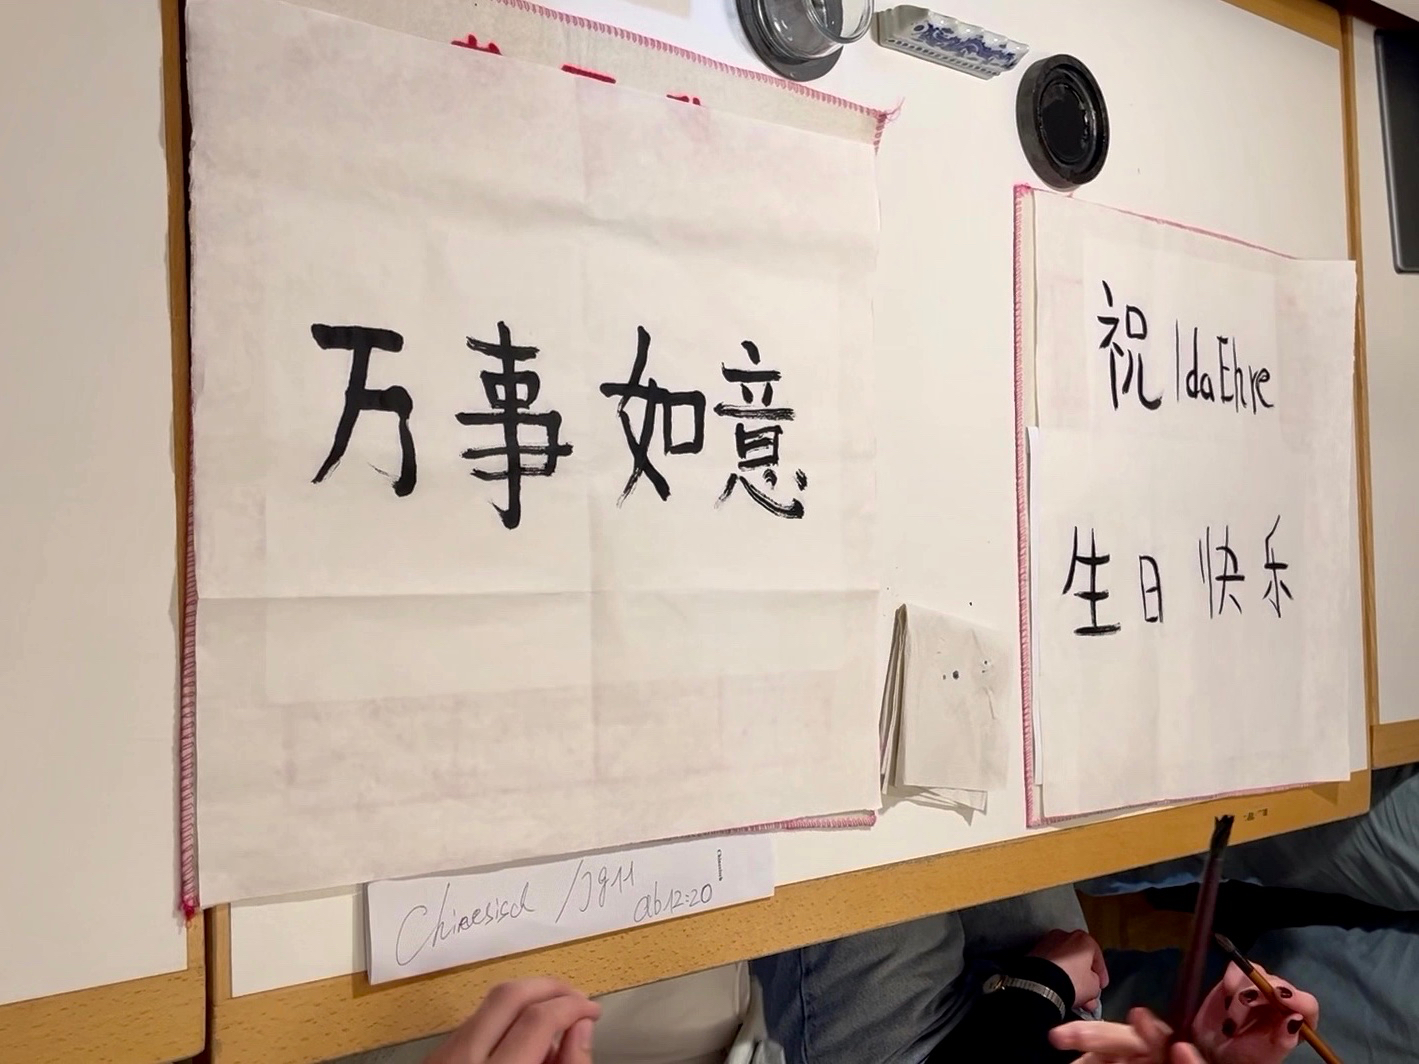 万事如意
祝 Ida Ehre
生日快乐
Chinesisch / Jg 11
ab 12:20